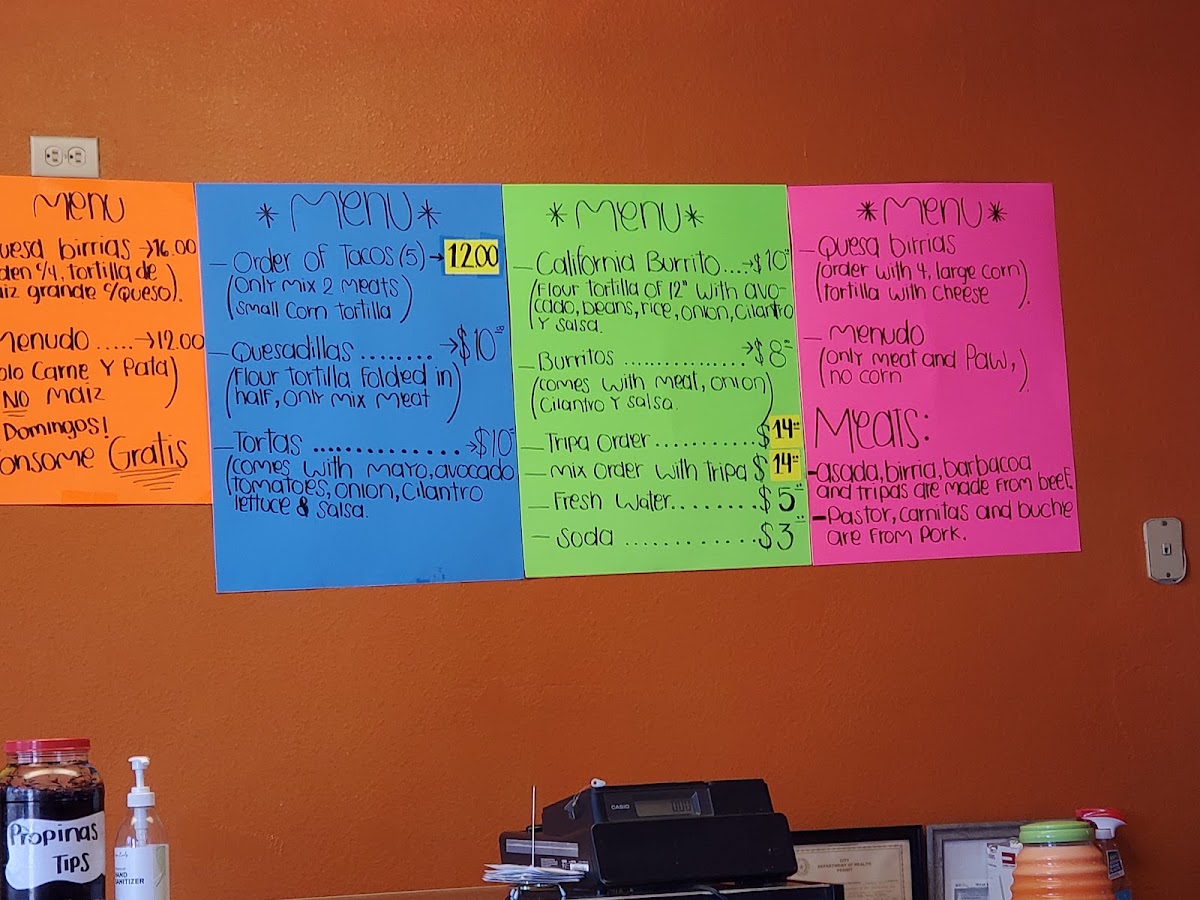 Menu
uesa birrias →16.00
den c/4, tortilla de
iz grande c/queso).
Menudo ......→12.00
olo Carne Y Pata)
NO maiz
Domingos!
onsome Gratis
* Menu *
- Order of Tacos (5) → 12.00
(only mix 2 meats
small corn tortilla)
- Quesadillas ........ →$10.00
(Flour tortilla folded in
half, only mix meat)
- Tortas .............. →$10.00
(comes with mayo, avocado
tomatoes, onion, cilantro
lettuce & salsa.
* Menu *
- California Burrito....→$10.00
(Flour tortilla of 12" with avo-
cado, beans, rice, onion, cilantro
Y salsa.
- Burritos ................→$8.00
(comes with meat, onion)
Cilantro Y salsa.
- Tripa order........... $14.00
- mix order with tripa $14.00
- Fresh Water........ $5.00
- Soda ............ $3.00
* Menu *
- Quesa birrias
(order with 4, large corn)
tortilla with cheese
- Menudo
(only meat and Paw,
no corn).
Meats:
- asada, birria, barbacoa
and tripas are made from beef.
- Pastor, carnitas and buche
are from pork.
Propinas
Tips
HAND
SANITIZER
CASIO
0.00
CITY
DEPARTMENT OF HEALTH
PERMIT